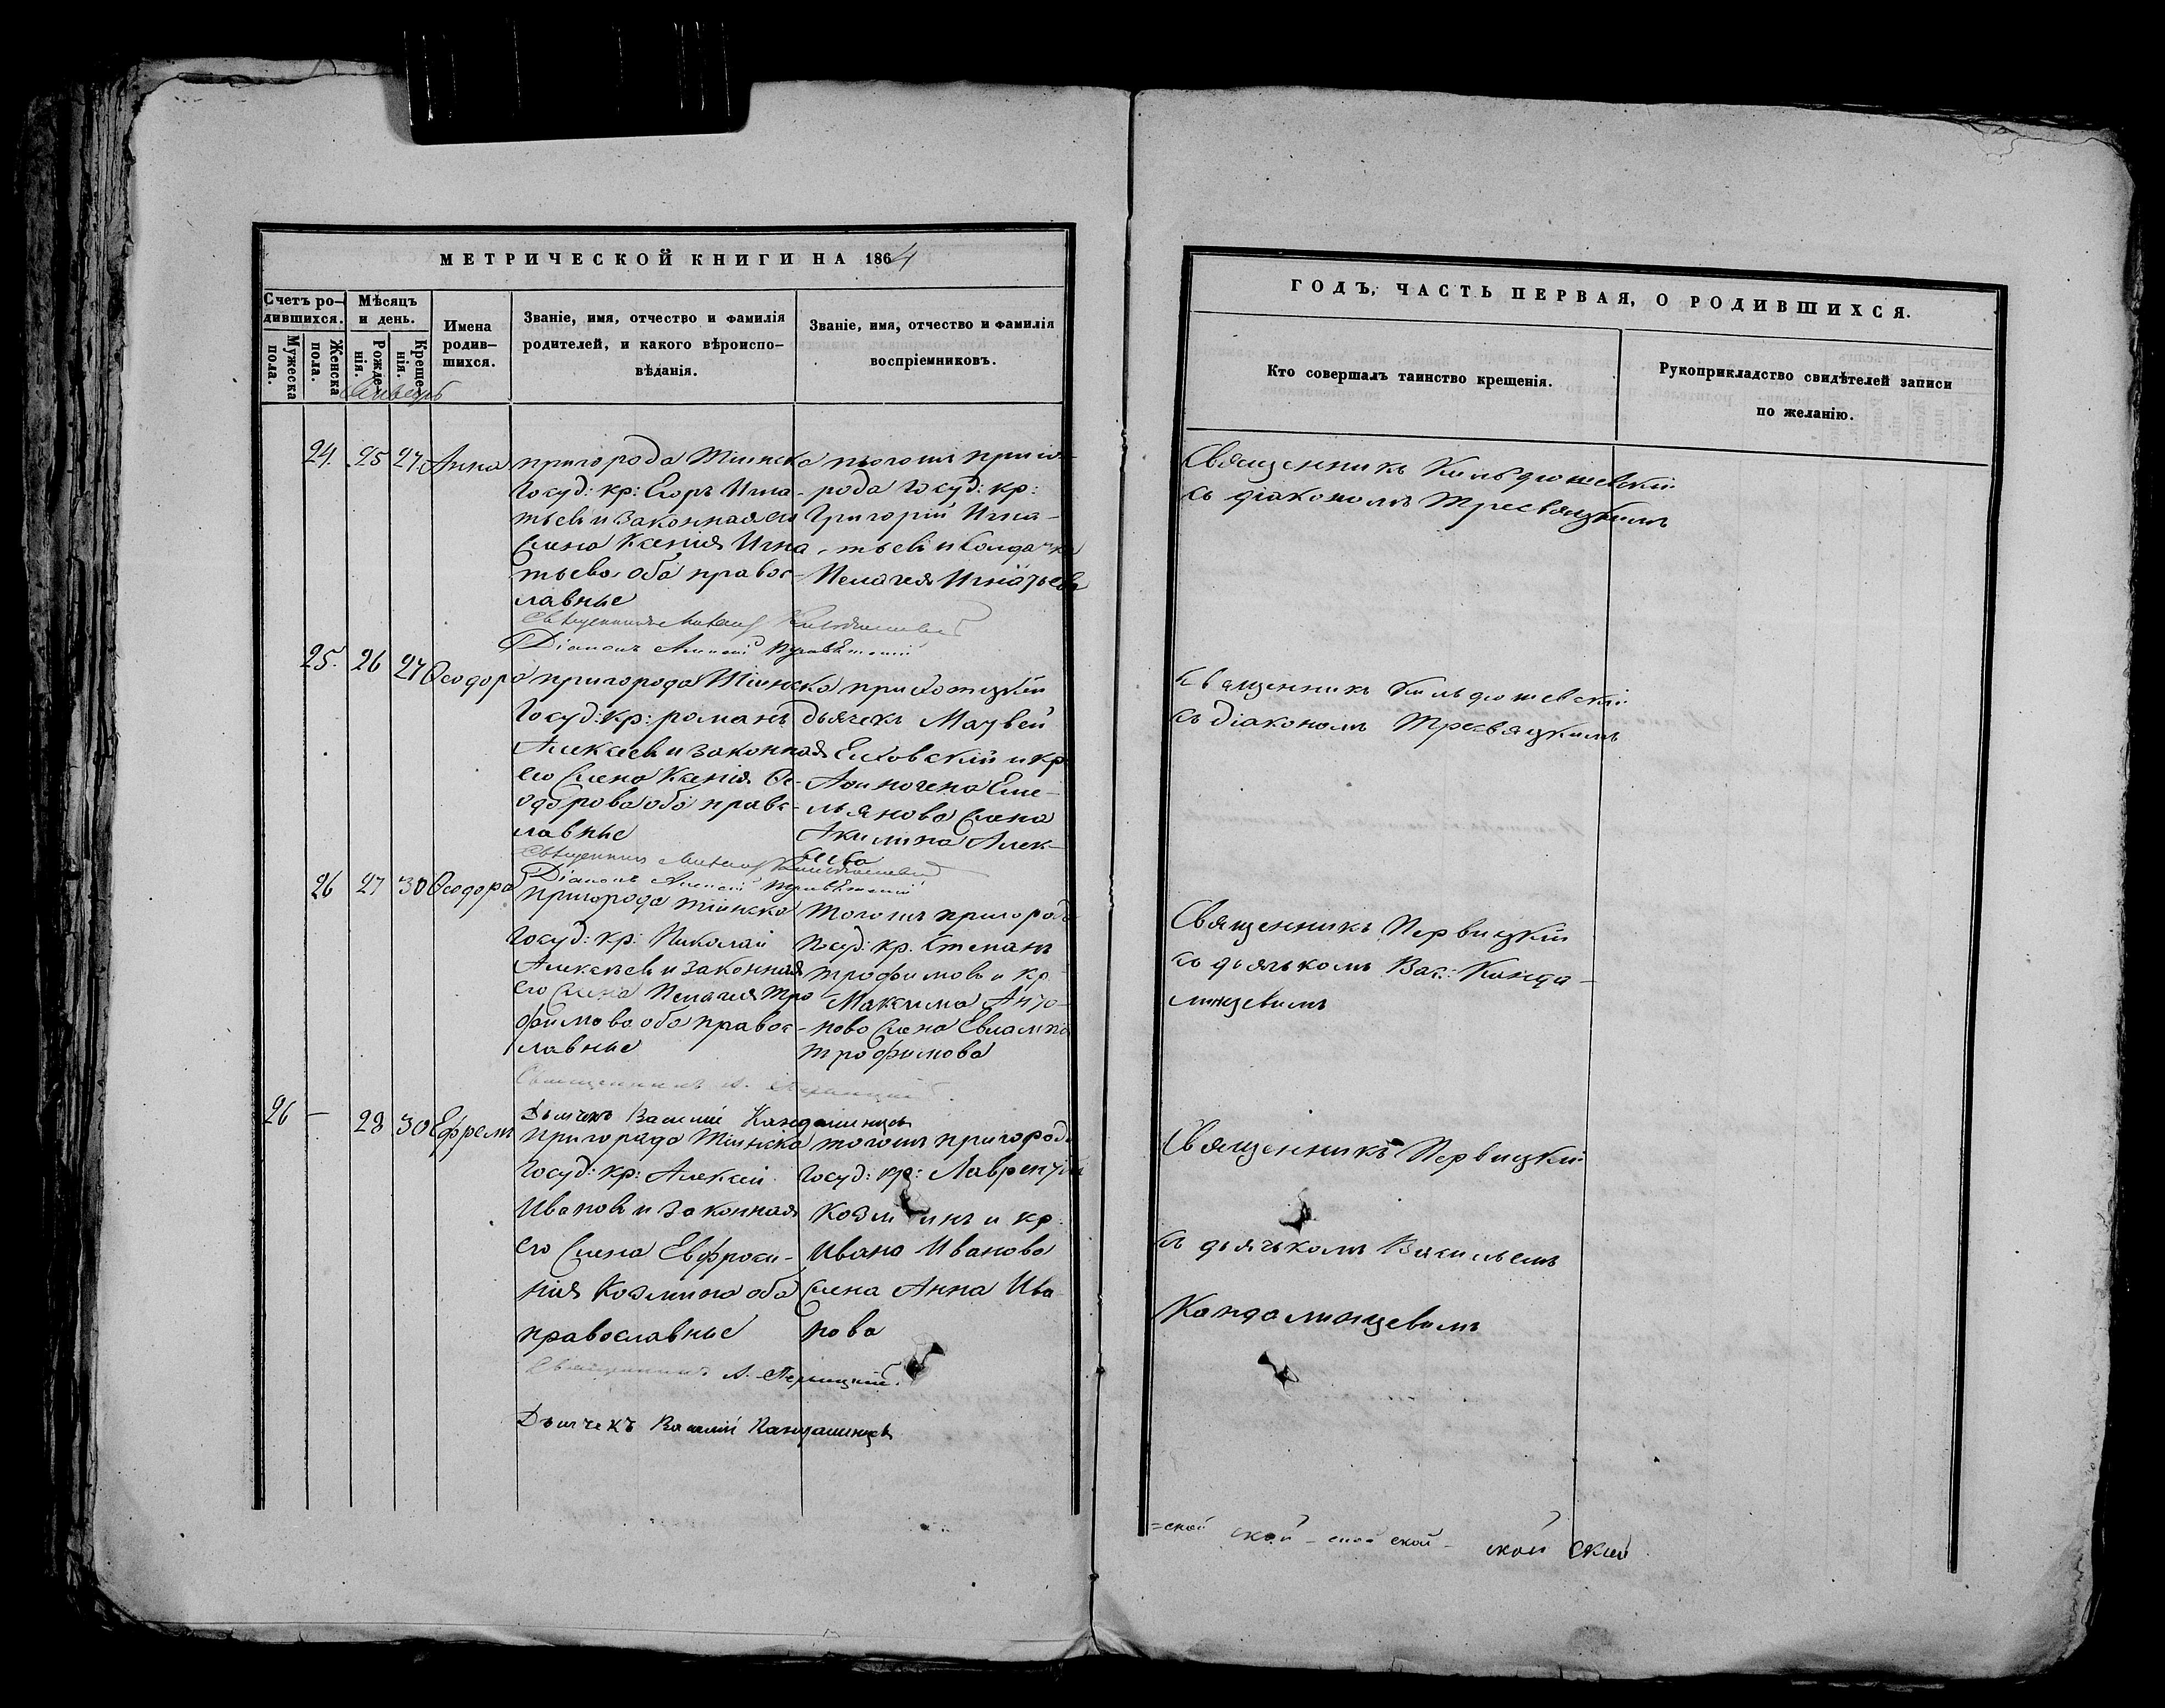 МЕТРИЧЕСКОЙ КНИГИ НА 1864
Счетъ ро-
дившихся.
Мужеска
пола.
Женска
пола.
Мѣсяцъ
и день.
Рожде-
нія.
Креще-
нія.
Имена
родив-
шихся.
Званіе, имя, отчество и фамилія
родителей, и какого вѣроиспо-
вѣданія.
Званіе, имя, отчество и фамилія
воспріемниковъ.
Январь
24. 25 27. Анна
пригорода Тіинска
Госуд: кр: Егоръ Игна-
тьевъ и законная его
жена Ксенія Игна-
тьева оба правос-
лавные
тогожъ приго-
рода Госуд: кр:
Григорій Игна-
тьевъ и солдатка
Пелагея Игнатьева
Священникъ Михаилъ Кильдюшевскій
Діаконъ Алексій
25. 26 27 Ѳеодора
пригорода Тіинска
Госуд: кр: романъ
Алексеевъ и законная
его жена Ксенія Ѳе-
одорова оба правс-
лавные
приходскій
дьячекъ Матвей
Елховскій и кр
Афиногена Еме-
льянова жена
Акилина Алек-
сеева
Священникъ Михаилъ Кильдюшевскій
Діаконъ Алексій
26 27 30 Ѳеодора
Пригорода Тіинска
Госуд: кр: Николай
Алексѣевъ и законная
его жена Пелагея Тро
фимова оба правос-
лавные
тогожъ пригорода
Госуд: кр. Степанъ
трофимовъ и кр
Максима Анто-
нова жена Евлампія
трофимова
Священникъ А.
Дьячекъ Василій Кандалинцевъ
26 – 28 30 Ефремъ
пригорада Тіинска
Госуд: кр: Алексей
Ивановъ и законная
его жена Евфроси-
нія Козмина оба
православные
тогожъ пригорода
Госуд: кр: Лаврентій
Козминъ и кр:
Ивана Иванова
жена Анна Ива
нова
Священникъ А. Первицкій.
Дьячекъ Василій Кандалинцевъ
ГОДЪ, ЧАСТЬ ПЕРВАЯ, О РОДИВШИХСЯ.
Кто совершалъ таинство крещенія.
Рукоприкладство свидѣтелей записи
по желанію.
Священникъ Кильдюшевскій
съ діакономъ Тресвяцкимъ
священникъ Кильдюшевскій
съ діакономъ Тресвяцкимъ
Священникъ Первицкій
съ дьячькомъ Вас: Канда-
линцевимъ
Священникъ Первицкій
съ дьячькомъ Васильемъ
Кандалинцевымъ
=ской ской – ской ской – ской ский